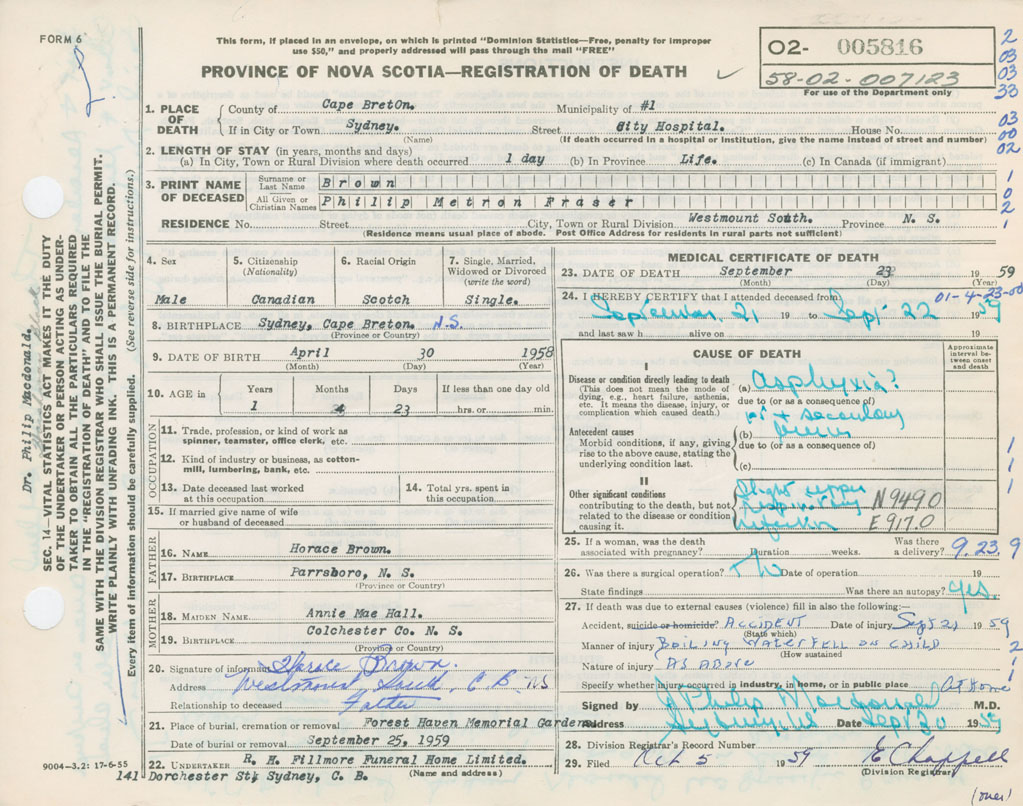 FORM 6
This form, if placed in an envelope, on which is printed "Dominion Statistics—Free, penalty for improper
use $50," and properly addressed will pass through the mail "FREE"
PROVINCE OF NOVA SCOTIA—REGISTRATION OF DEATH
02- 005816
58-02-007123
For use of the Department only
2
03
03
33
03
00
02
1
0
2
1
1. PLACE OF DEATH
County of Cape BretOn. Municipality of #1
If in City or Town Sydney. Street City Hospital. House No.
(Name) (If death occurred in a hospital or institution, give the name instead of street and number)
2. LENGTH OF STAY (in years, months and days)
(a) In City, Town or Rural Division where death occurred 1 day (b) In Province Life. (c) In Canada (if immigrant)
3. PRINT NAME OF DECEASED
Surname or Last Name Brown
All Given or Christian Names Philip Metron Fraser
RESIDENCE No. Street City, Town or Rural Division Westmount South. Province N. S.
(Residence means usual place of abode. Post Office Address for residents in rural parts not sufficient)
4. Sex
Male
5. Citizenship
(Nationality)
Canadian
6. Racial Origin
Scotch
7. Single, Married, Widowed or Divorced
(write the word)
Single.
8. BIRTHPLACE Sydney, Cape Breton. N.S.
(Province or Country)
9. DATE OF BIRTH April 30 1958
(Month) (Day) (Year)
10. AGE in
Years Months Days If less than one day old
1 4 23 hrs. or min.
OCCUPATION
11. Trade, profession, or kind of work as
spinner, teamster, office clerk, etc.
12. Kind of industry or business, as cotton-
mill, lumbering, bank, etc.
13. Date deceased last worked
at this occupation
14. Total yrs. spent in
this occupation
15. If married give name of wife
or husband of deceased
FATHER
16. NAME Horace Brown.
17. BIRTHPLACE Parrsboro, N. S.
(Province or Country)
MOTHER
18. MAIDEN NAME Annie Mae Hall.
19. BIRTHPLACE Colchester Co. N. S.
(Province or Country)
20. Signature of informant Horace Brown.
Address Westmount South, C.B NS
Relationship to deceased Father
21. Place of burial, cremation or removal Forest Haven Memorial Gardens
Date of burial or removal September 25, 1959
22. UNDERTAKER R. H. Fillmore Funeral Home Limited.
141 Dorchester St. Sydney, C. B. (Name and address)
9004—3.2: 17-6-55
MEDICAL CERTIFICATE OF DEATH
23. DATE OF DEATH September 23 19 59
(Month) (Day) (Year)
01-4-23-00
24. I HEREBY CERTIFY that I attended deceased from
September 21 19 to Sept 22 1959
and last saw h alive on 19
CAUSE OF DEATH
Approximate interval between onset and death
I
Disease or condition directly leading to death
(This does not mean the mode of
dying, e.g., heart failure, asthenia,
etc. It means the disease, injury, or
complication which caused death.)
(a) asphyxia?
due to (or as a consequence of)
1st + secondary
Antecedent causes
Morbid conditions, if any, giving
rise to the above cause, stating the
underlying condition last.
(b) burns
due to (or as a consequence of)
(c)
II
Other significant conditions
contributing to the death, but not
related to the disease or condition
causing it.
Slight upper
respiratory
infection
N949.0
E917.0
1
1
1
25. If a woman, was the death
associated with pregnancy? Duration weeks. Was there
a delivery?
9.23.9
26. Was there a surgical operation? No Date of operation 19
State findings Was there an autopsy? yes.
27. If death was due to external causes (violence) fill in also the following:—
Accident, suicide or homicide? ACCIDENT Date of injury Sept 21 1959
(State which)
Manner of injury BOILING WATER FELL ON CHILD
(How sustained
Nature of injury AS ABOVE
2
1
Specify whether injury occurred in industry, in home, or in public place At Home
Signed by J Philip Macdonald M.D.
Address Date Sept 30 1959
28. Division Registrar's Record Number
29. Filed Oct 5 19 59 E Chappell
(Division Registrar)
(over)
Dr. Philip Macdonald.
SEC. 14—VITAL STATISTICS ACT MAKES IT THE DUTY
OF THE UNDERTAKER OR PERSON ACTING AS UNDER-
TAKER TO OBTAIN ALL THE PARTICULARS REQUIRED
IN THE "REGISTRATION OF DEATH" AND TO FILE THE
SAME WITH THE DIVISION REGISTRAR WHO SHALL ISSUE THE BURIAL PERMIT.
WRITE PLAINLY WITH UNFADING INK. THIS IS A PERMANENT RECORD.
Every item of information should be carefully supplied. (See reverse side for instructions.)